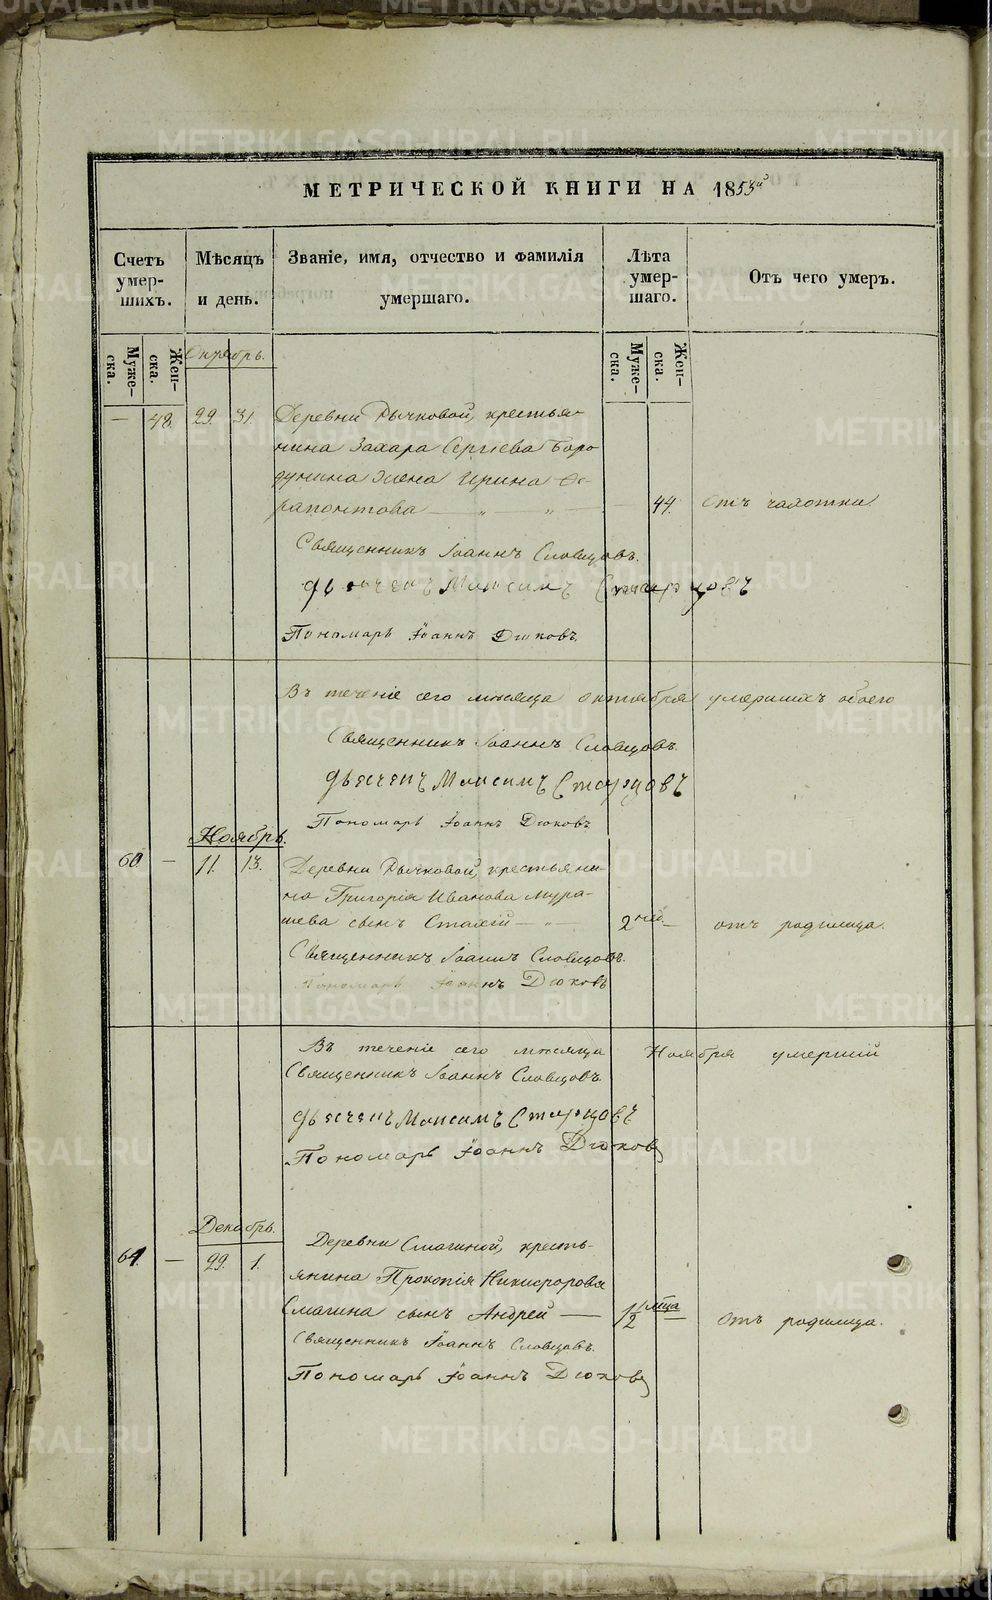 МЕТРИЧЕСКОЙ КНИГИ НА 1853й
Счетъ умер-шихъ.
Мѣсяцъ и день.
Званіе, имя, отчество и фамилія умершаго.
Лѣта умер-шаго.
Отъ чего умеръ.
Муже-ска.
Жен-ска.
Муже-ска.
Жен-ска.
Октябрь.
— 48. 29. 31. Деревни Рычковой, крестья-
нина Захара Сергіева Боро-
дунина жена Ирина Фе-
рапонтова — „ — „ — 44. отъ чахотки.
Священникъ Іоаннъ Словцовъ.
Дьяченъ Максимъ Старцовъ
Пономарь Іоаннъ Дюковъ.
Въ теченіе сего мѣсяца октября умершихъ обоего
Священникъ Іоаннъ Словцовъ.
Дьяченъ Максимъ Старцовъ
Пономарь Іоаннъ Дюковъ
Ноябрь.
60 — 11. 13. Деревни Рычковой, крестьяни-
на Григорія Иванова Мура-
шева сынъ — „ — 2 нед. — отъ родимца.
Священникъ Іоаннъ Словцовъ.
Пономарь Іоаннъ Дюковъ
Въ теченіе сего мѣсяца Ноября умершій
Священникъ Іоаннъ Словцовъ.
Дьяченъ Максимъ Старцовъ
Пономарь Іоаннъ Дюковъ
Декабрь.
61. — 29. 1. Деревни Смагиной, кресть-
янина Прокопія Никифорова
Смагина сынъ Андрей — 1 1/2 мца — отъ родимца.
Священникъ Іоаннъ Словцовъ.
Пономарь Іоаннъ Дюковъ
METRIKI.GASO-URAL.RU